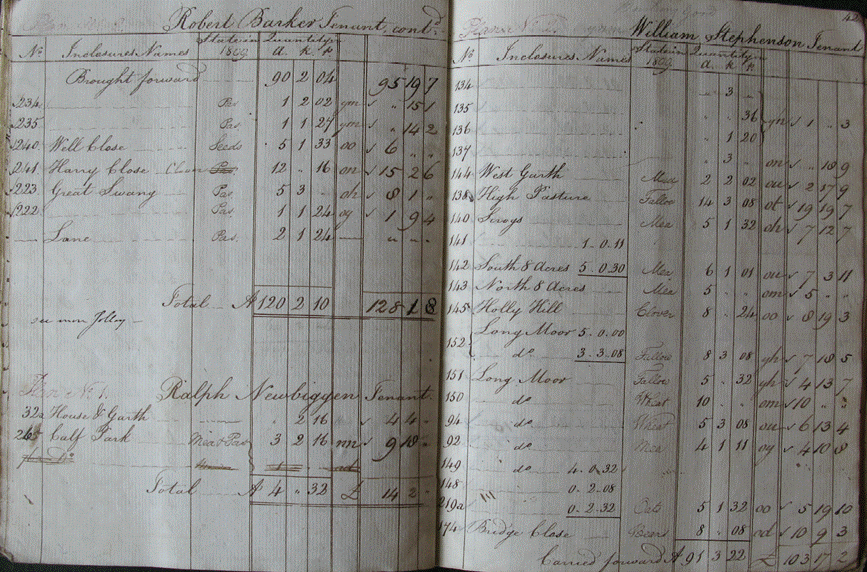 Robert Barker Tenant, contd.
No. Inclosures Names State in 1809 Quantity in A R P
Brought forward 90 2 04 95 19 7
234 Pas. 1 2 02 ym " 15 1
235 Pas. 1 1 27 ym " 14 2
240 Well Close Seeds 5 1 33 oo 6 " "
241 Harry Close Pas 12 " 16 on 15 2 6
223 Great Swang Pas 5 3 . oh 8 1 "
222 Pas. 1 1 24 oy 1 9 4
Lane Pas. 2 1 24 " " "
Total A 120 2 10 128 1 8
Farm No. 1. Ralph Newbiggen Tenant.
32a House & Garth 2 16 4 4 "
265 Calf Park Mea & Pas 3 2 16 nn 9 18 "
Total A 4 " 32 £ 14 2 "
William Stephenson Tenant
No. Inclosures Names State in 1809 Quantity in A R P
134 - 3 -
135 . . 36 yn 1 " 3
136 . 1 20
137 . 3 . on " 18 9
144 West Garth Mea 2 2 02 ou 2 17 9
138 High Pasture Fallow 14 3 08 ot 19 19 7
140 Seroys Mea 5 1 32 oh 7 12 7
141 1.0.11
142 South 8 Acres 5.0.30 Mea 6 1 01 ou 7 3 11
143 North 8 Acres Mea 5 . . om 5 " "
145 Holly Hill Clover 8 . 24 oo 8 19 3
Long Moor 5.0.00
152 do 3.3.08 Fallow 8 3 08 yh 7 18 5
151 Long Moor Fallow 5 . 32 yh 4 13 7
150 do Wheat 10 . . om 10 " "
94 do Wheat 5 3 08 ou 6 13 4
92 do Mea 4 1 11 oy 4 10 8
149 do 4.0.32
148 0.2.08
219a 0.2.32 Oats 5 1 32 oo 5 19 10
174 Bridge Close Beans 8 . 08 od 10 9 3
Carried forward A 91 3 22 £ 103 17 2